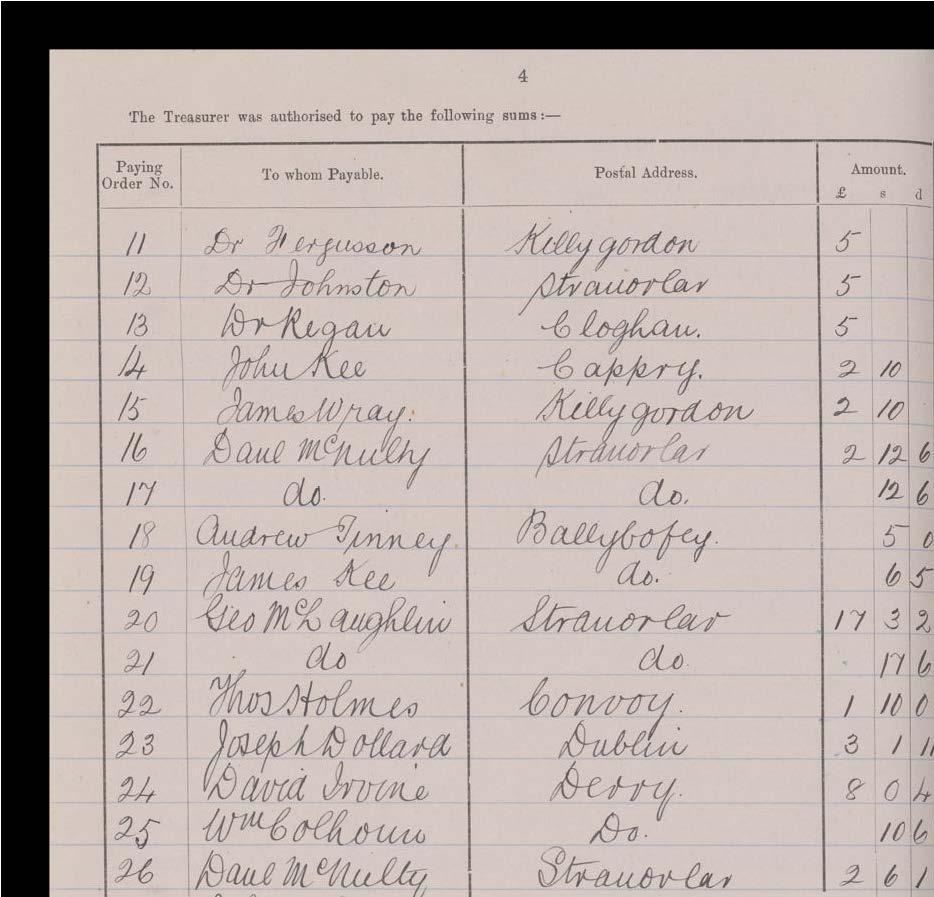 4
The Treasurer was authorised to pay the following sums:—
Paying Order No. To whom Payable. Postal Address. Amount. £ s d
11 Dr Fergusson Killygordon 5
12 Dr Johnston Stranorlar 5
13 Dr Regan Cloghan. 5
14 John Kee Cappry. 2 10
15 James Wray. Killygordon 2 10
16 Danl McNulty Stranorlar 2 12 6
17 do. do. 12 6
18 Andrew Tinney Ballybofey. 5 0
19 James Kee do. 6 5
20 Geo McLaughlin Stranorlar 17 3 2
21 do do. 17 6
22 Thos Holmes Convoy. 1 10 0
23 Joseph Dollard Dublin 3 1 11
24 David Irvine Derry. 8 0 4
25 Wm Colhoun Do. 10 6
26 Danl McNulty Stranorlar 2 6 1